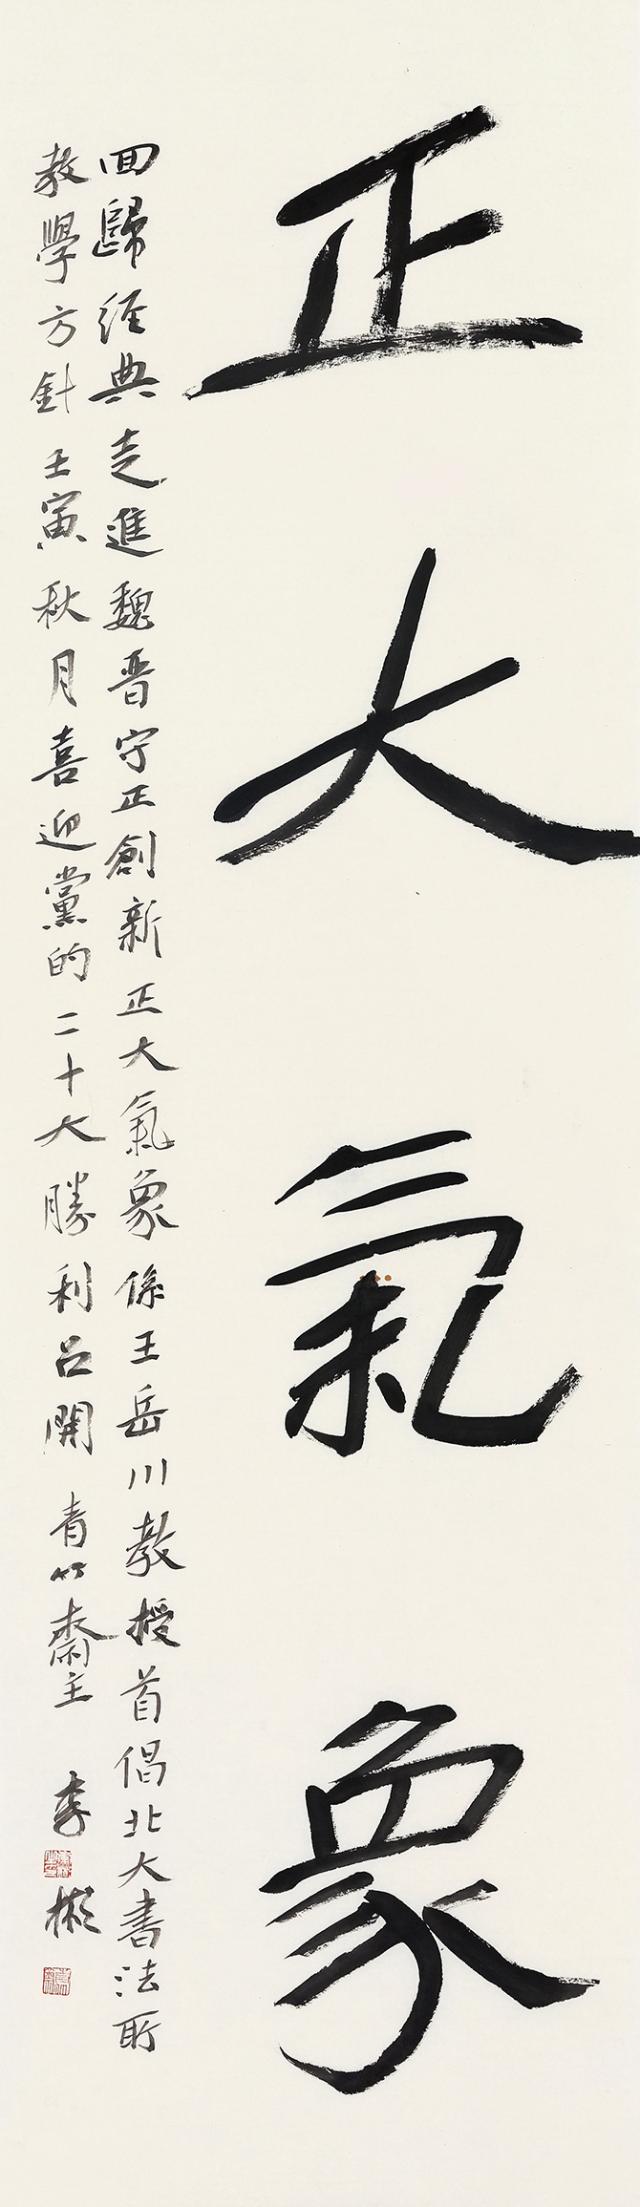 正大氣象
回歸經典走進魏晉守正創新正大氣象係王岳川教授首倡北大書法所
教學方針壬寅秋月喜迎黨的二十大勝利召開青竹齋主李彬